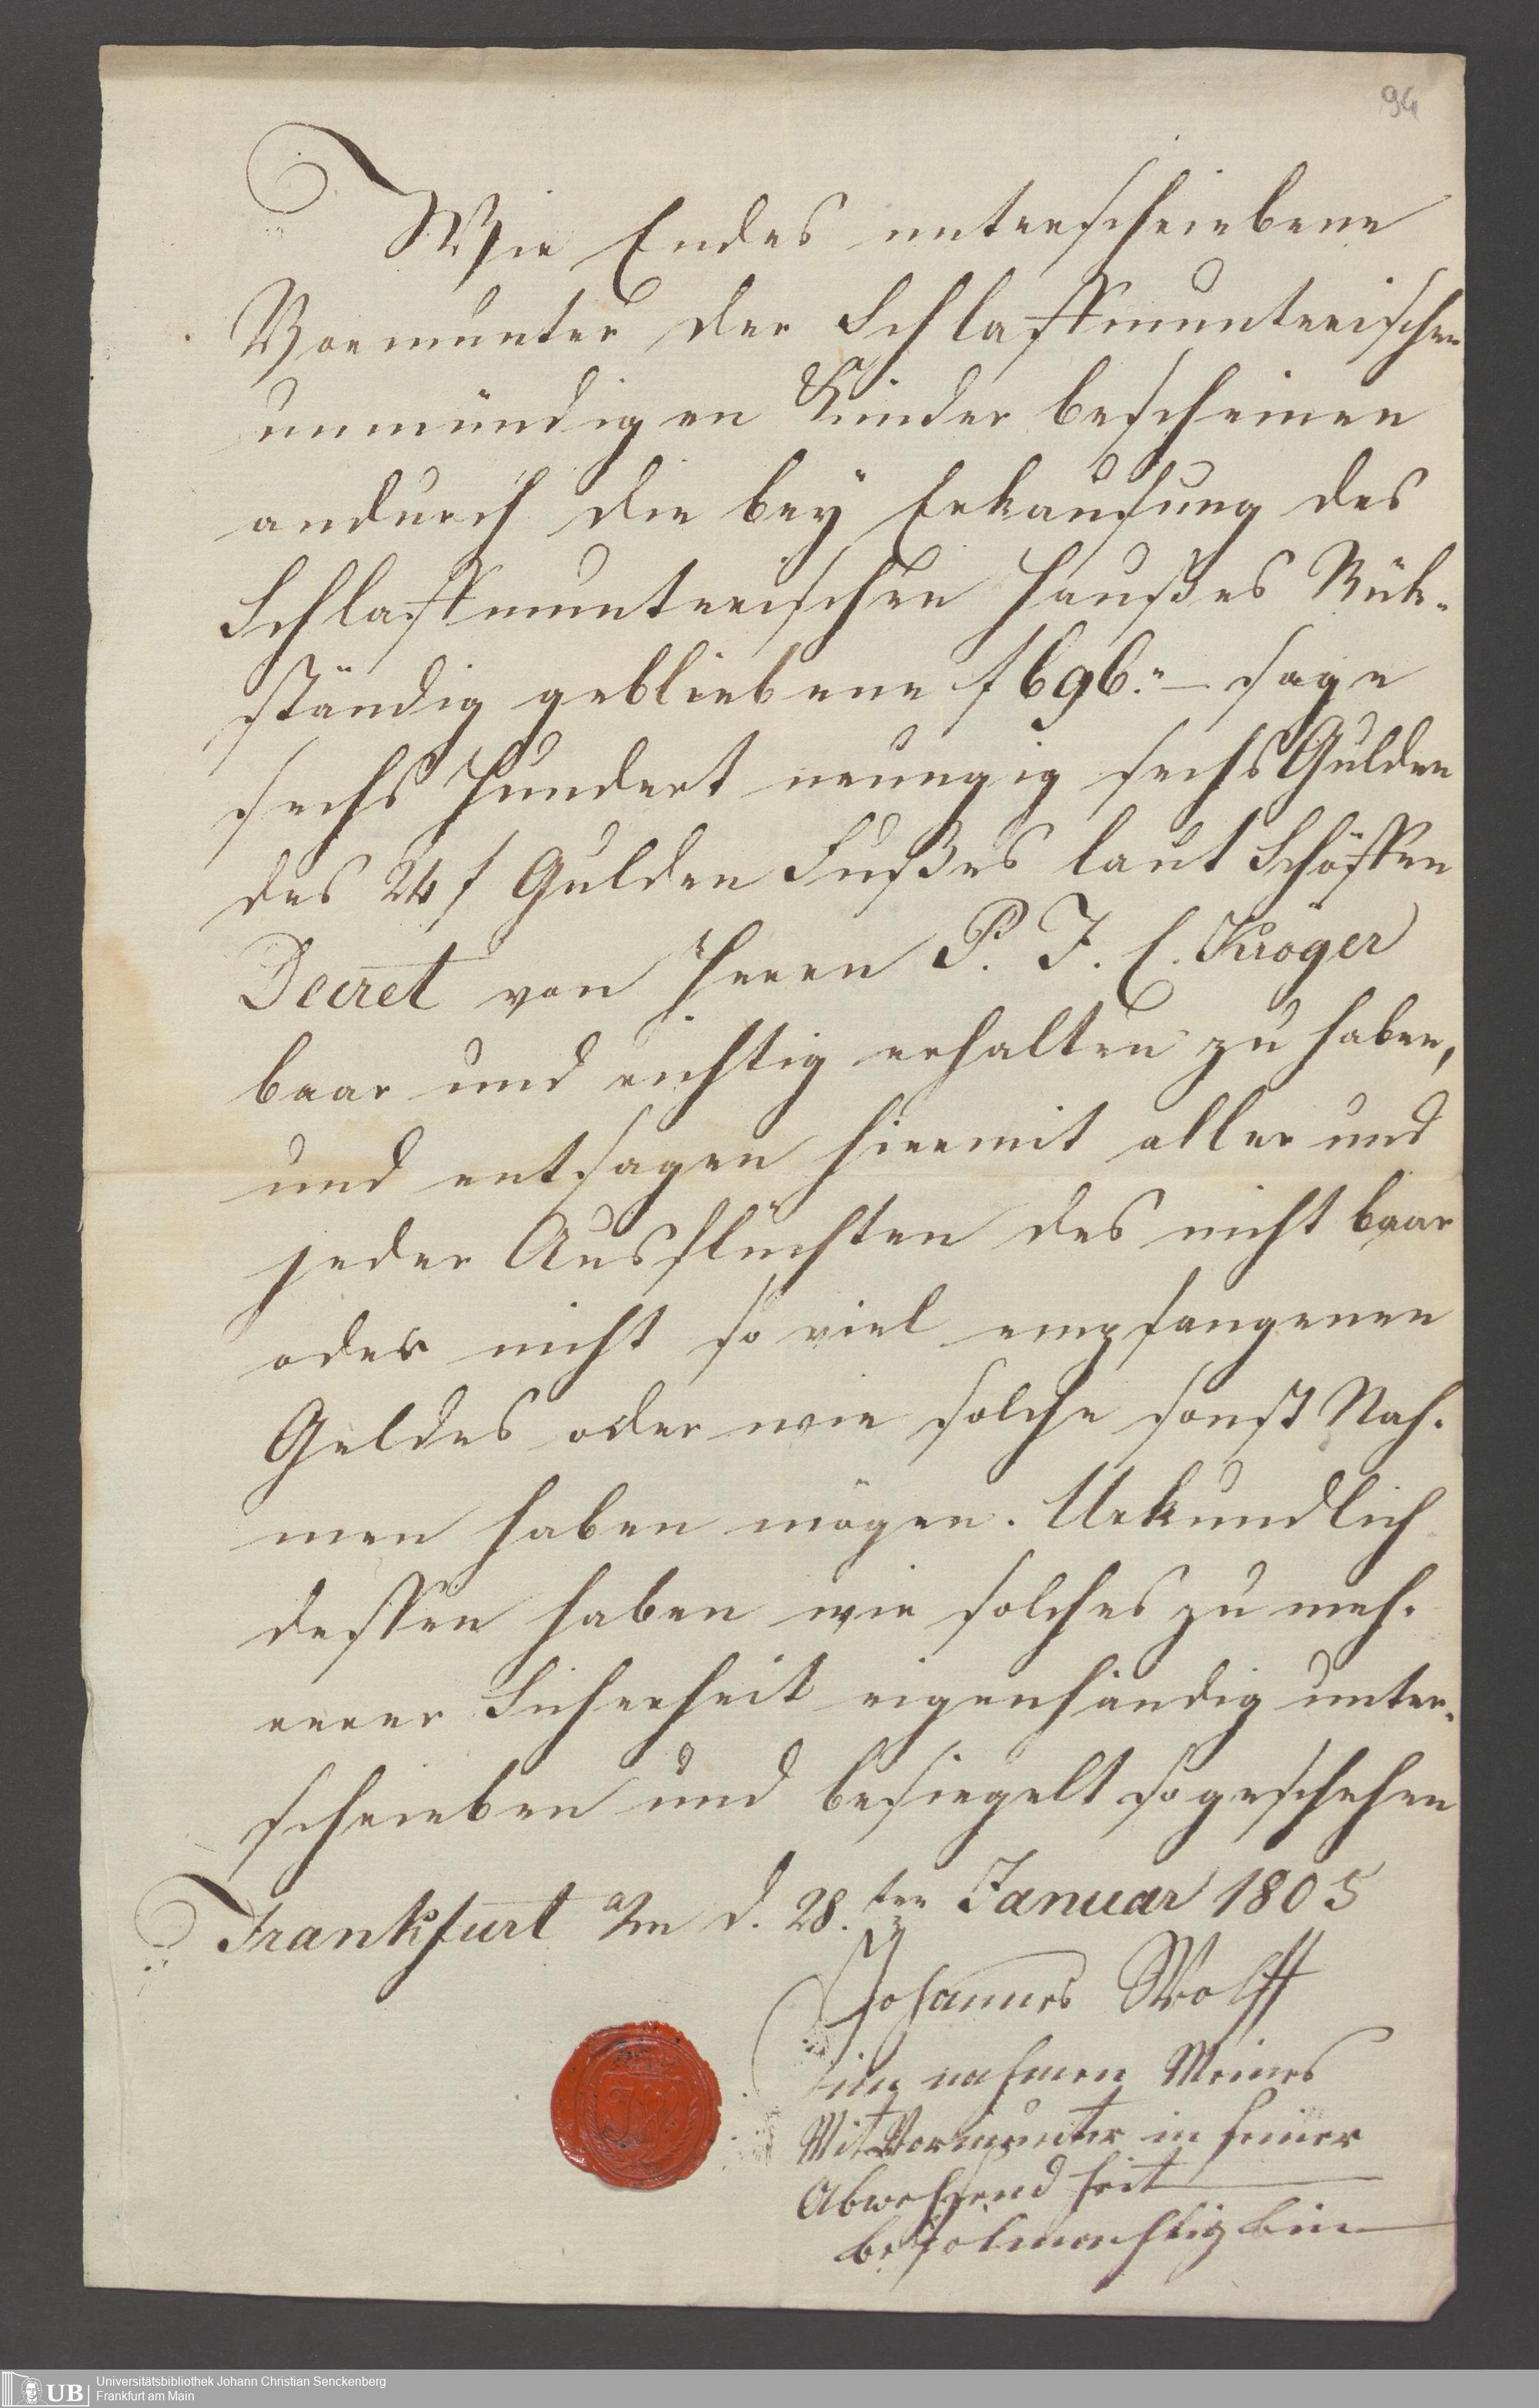 94
Wir Endes unterschriebene
Vormünter der Schlaffmunterischen
unmündigen Kinder bescheinen
andurch die bey Erkaufung des
Schlaffmunterischen Haußes Rük-
ständig gebliebene f 696.- sage
sechs Hundert neunzig sechs Gulden
des 24 f Gulden Fußes laut Schöffen
Decret von Herrn P. J. C. Kröger
baar und richtig erhalten zu haben,
und entsagen hiermit aller und
jeder Ausflüchten des nicht baar
oder nicht so viel empfangenen
Geldes oder wie solche sonst Nah-
men haben mögen. Urkundlich
dessen haben wir solches zu meh-
rerer Sicherheit eigenhändig unter-
schrieben und besiegelt so geschehen
Frankfurt a/m d. 28.ten Januar 1805
Johannes Wolff
im nahmen Meines
Mit Vormünter in seiner
Abwesendheit
befolmachtig bin
UB
Universitätsbibliothek Johann Christian Senckenberg
Frankfurt am Main